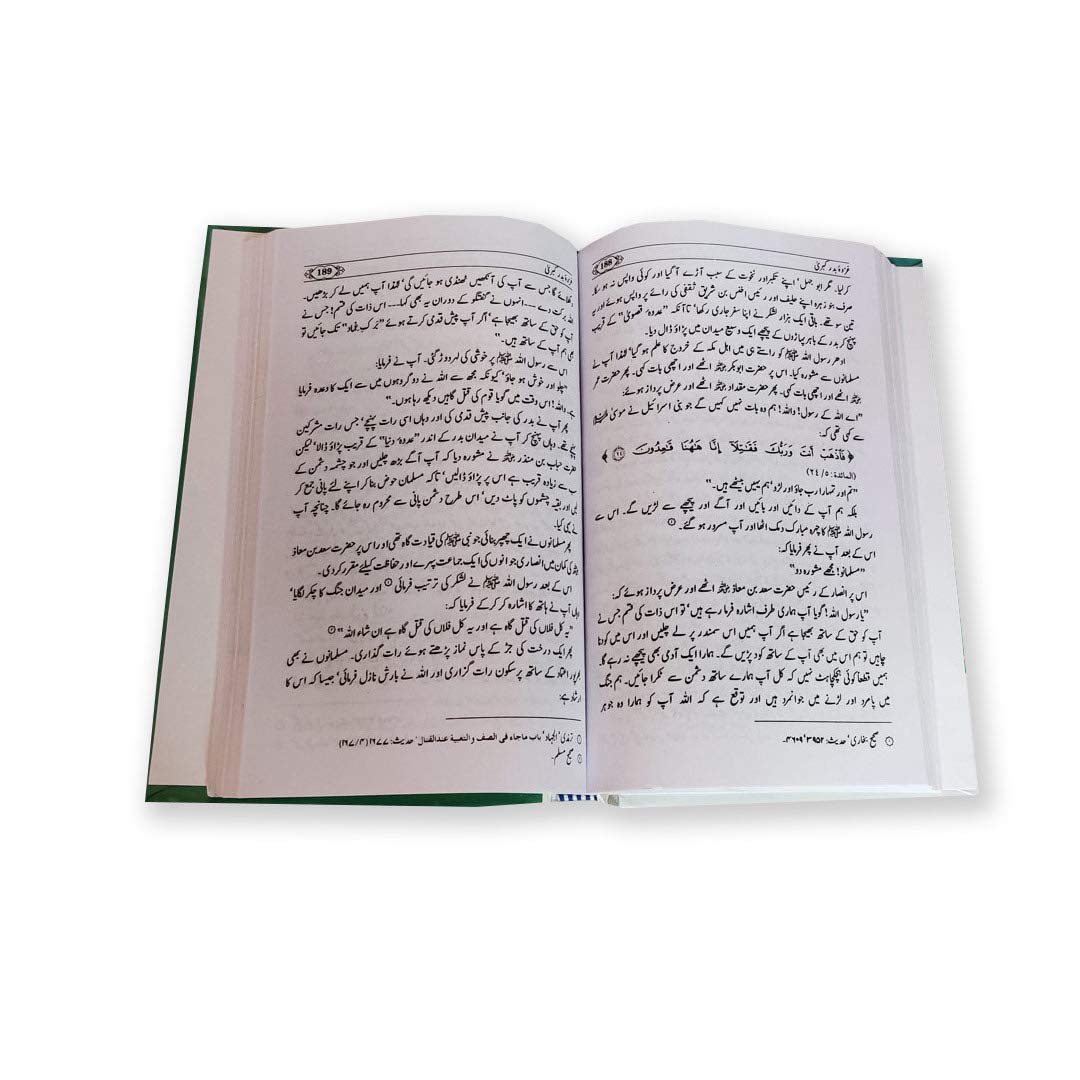 188 غزوۂ بدر کبریٰ
کر لیا۔ مگر ابو جہل' اپنے تکبر اور نخوت کے سبب آڑے آ گیا اور کوئی واپس نہ ہو سکا۔
صرف بنو زہرہ اپنے حلیف اور رئیس اخنس بن شریق ثقفی کی رائے پر واپس ہوئے اور یہ
تین سو تھے۔ باقی ایک ہزار لشکر نے اپنا سفر جاری رکھا' تا آنکہ "عدوۂ قصویٰ" کے قریب
پہنچ کر بدر کے باہر پہاڑوں کے پیچھے ایک وسیع میدان میں پڑاؤ ڈال دیا۔
ادھر رسول اللہ ﷺ کو راستے ہی میں اہل مکہ کے خروج کا علم ہو گیا' لہٰذا آپ نے
مسلمانوں سے مشورہ کیا۔ اس پر حضرت ابوبکر رضی اللہ عنہ اٹھے اور اچھی بات کہی۔ پھر حضرت عمر
رضی اللہ عنہ اٹھے اور اچھی بات کہی۔ پھر حضرت مقداد رضی اللہ عنہ اٹھے اور عرض پرداز ہوئے:
"اے اللہ کے رسول! واللہ! ہم وہ بات نہیں کہیں گے جو بنی اسرائیل نے موسیٰ ﷺ
سے کہی تھی کہ:
﴿ فَاذْهَبْ أَنتَ وَرَبُّكَ فَقَاتِلَا إِنَّا هَاهُنَا قَاعِدُونَ ٢٤ ﴾
(المائدة: ٥/ ٢٤)
"تم اور تمہارا رب جاؤ اور لڑو' ہم یہیں بیٹھے ہیں۔"
بلکہ ہم آپ کے دائیں اور بائیں اور آگے اور پیچھے سے لڑیں گے۔ اس سے
رسول اللہ ﷺ کا چہرہ مبارک دمک اٹھا اور آپ مسرور ہو گئے۔ ①
اس کے بعد آپ نے پھر فرمایا کہ:
"مسلمانو! مجھے مشورہ دو"
اس پر انصار کے رئیس حضرت سعد بن معاذ رضی اللہ عنہ اٹھے اور عرض پرداز ہوئے کہ:
"یا رسول اللہ! گویا آپ ہماری طرف اشارہ فرما رہے ہیں' تو اس ذات کی قسم جس نے
آپ کو حق کے ساتھ بھیجا ہے اگر آپ ہمیں اس سمندر پر لے چلیں اور اس میں کودنا
چاہیں تو ہم اس میں بھی آپ کے ساتھ کود پڑیں گے۔ ہمارا ایک آدمی بھی پیچھے نہ رہے گا۔
ہمیں قطعاً کوئی ہچکچاہٹ نہیں کہ کل آپ ہمارے ساتھ دشمن سے ٹکرا جائیں۔ ہم جنگ
میں پامرد اور لڑنے میں جوانمرد ہیں اور توقع ہے کہ اللہ آپ کو ہمارا وہ جوہر
① صحیح بخاری' حدیث: ٣٩٥٢' ٤٦٠٩۔
غزوۂ بدر کبریٰ 189
دکھلائے گا جس سے آپ کی آنکھیں ٹھنڈی ہو جائیں گی' لہٰذا آپ ہمیں لے کر بڑھیں۔
اللہ برکت دے --- انہوں نے گفتگو کے دوران یہ بھی کہا.... اس ذات کی قسم! جس نے
آپ کو حق کے ساتھ بھیجا ہے' اگر آپ پیش قدمی کرتے ہوئے "برک غماد" تک جائیں تو
بھی ہم آپ کے ساتھ ہیں۔"
اس سے رسول اللہ ﷺ پر خوشی کی لہر دوڑ گئی۔ آپ نے فرمایا:
"چلو اور خوش ہو جاؤ' کیونکہ مجھ سے اللہ نے دو گروہوں میں سے ایک کا وعدہ فرمایا
ہے۔ واللہ! اس وقت میں گویا قوم کی قتل گاہیں دیکھ رہا ہوں۔"
پھر آپ نے بدر کی جانب پیش قدمی کی اور وہاں اسی رات پہنچے' جس رات مشرکین
پہنچے تھے۔ وہاں پہنچ کر آپ نے میدان بدر کے اندر "عدوۂ دنیا" کے قریب پڑاؤ ڈالا' لیکن
حضرت حباب بن منذر رضی اللہ عنہ نے مشورہ دیا کہ آپ آگے بڑھ چلیں اور جو چشمہ دشمن کے
سب سے زیادہ قریب ہے اس پر پڑاؤ ڈالیں' تاکہ مسلمان حوض بنا کر اپنے لئے پانی جمع کر
لیں اور بقیہ چشموں کو پاٹ دیں' اس طرح دشمن پانی سے محروم رہ جائے گا۔ چنانچہ آپ
نے یہی کیا۔
پھر مسلمانوں نے ایک چھپر بنائی جو نبی ﷺ کی قیادت گاہ تھی اور اس پر حضرت سعد بن معاذ
رضی اللہ عنہ کی کمان میں انصاری جوانوں کی ایک جماعت پہرے اور حفاظت کیلئے مقرر کر دی۔
اس کے بعد رسول اللہ ﷺ نے لشکر کی ترتیب فرمائی ① اور میدان جنگ کا چکر لگایا'
وہاں آپ نے ہاتھ کا اشارہ کر کر کے فرمایا کہ:
"یہ کل فلاں کی قتل گاہ ہے اور یہ کل فلاں کی قتل گاہ ہے ان شاء اللہ" ②
پھر ایک درخت کی جڑ کے پاس نماز پڑھتے ہوئے رات گذاری۔ مسلمانوں نے بھی
بھرپور اعتماد کے ساتھ پرسکون رات گزاری اور اللہ نے بارش نازل فرمائی' جیسا کہ اس کا
ارشاد ہے:
① ترمذی' الجہاد' باب ماجاء فی الصف والتعبیة عند القتال' حدیث: ١٦٧٧ (١٦٧/٤)
② صحیح مسلم۔